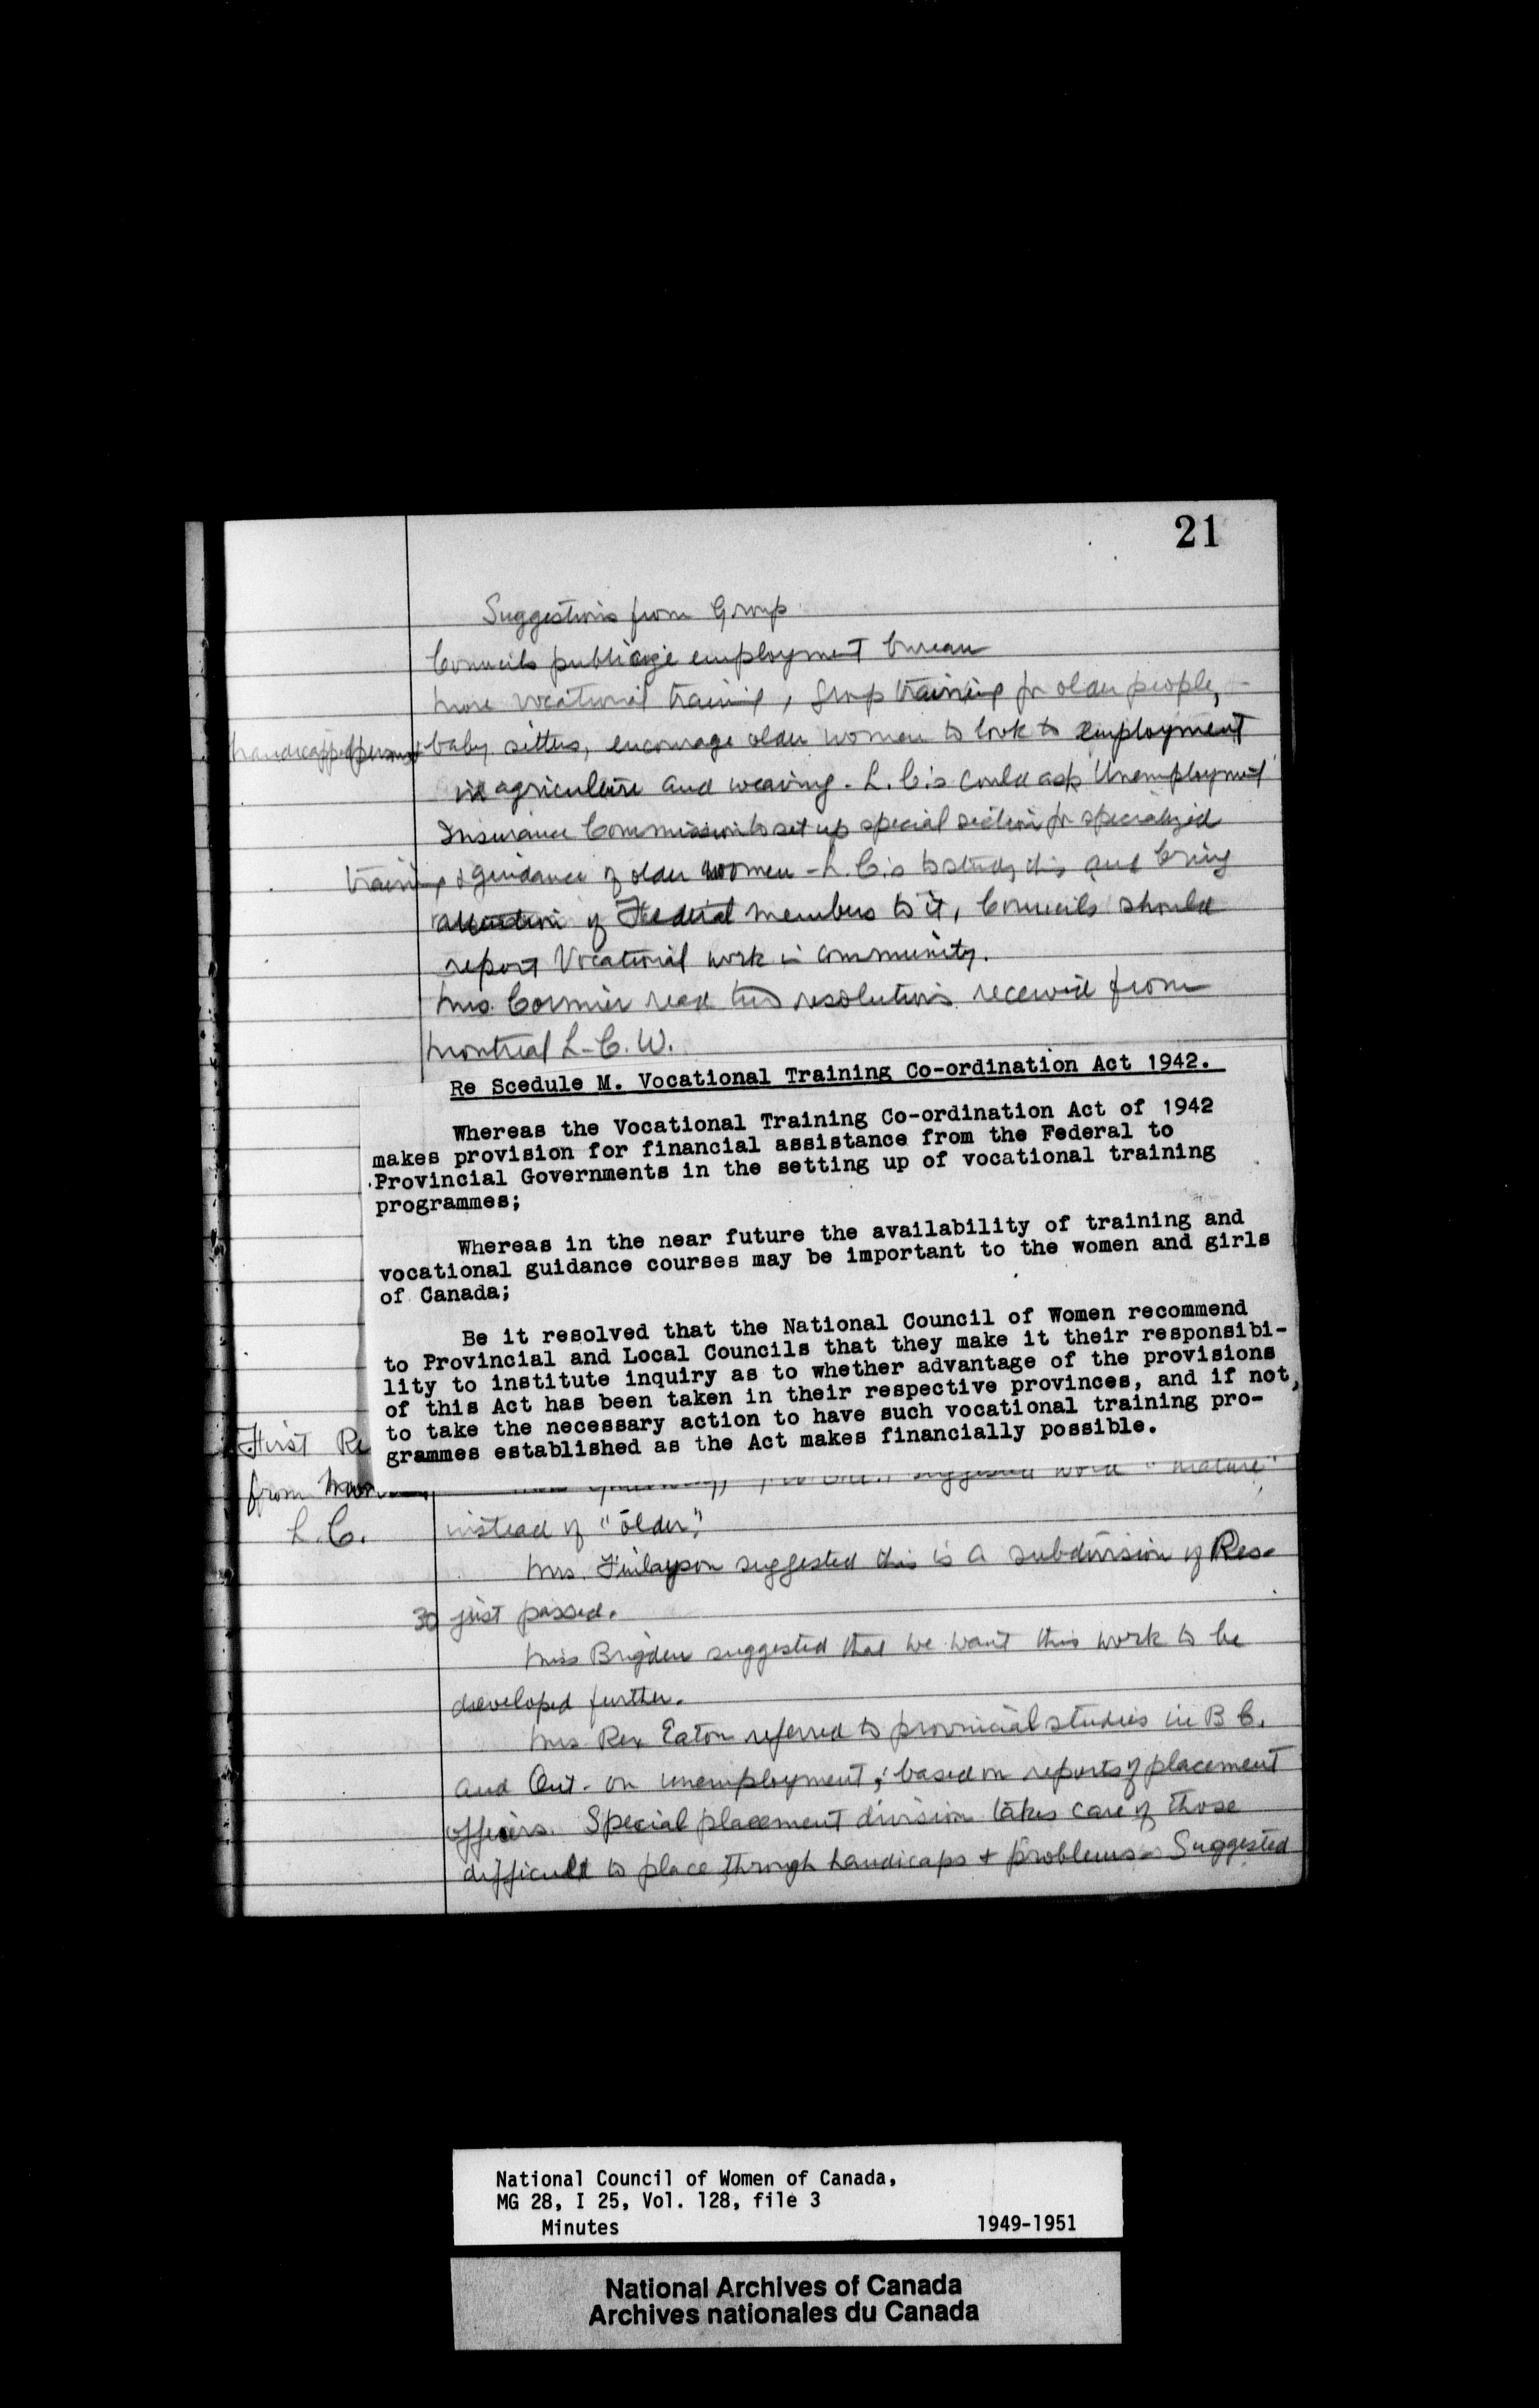 21
Suggestions from Group
Councils publicize employment bureau
more vocational training, group training for older people,
handicapped persons + baby sitters, encourage older women to look to employment
in agriculture and weaving. L.C.'s could ask Unemployment
Insurance Commission to set up special section for specialized
training & guidance of older women - L.C.'s to study this and bring
attention of Federal members to it, Councils should
report Vocational work in community.
Mrs. Cormier read two resolutions received from
Montreal L.C.W.
Re Scedule M. Vocational Training Co-ordination Act 1942.
Whereas the Vocational Training Co-ordination Act of 1942
makes provision for financial assistance from the Federal to
Provincial Governments in the setting up of vocational training
programmes;
Whereas in the near future the availability of training and
vocational guidance courses may be important to the women and girls
of Canada;
Be it resolved that the National Council of Women recommend
to Provincial and Local Councils that they make it their responsibi-
lity to institute inquiry as to whether advantage of the provisions
of this Act has been taken in their respective provinces, and if not,
to take the necessary action to have such vocational training pro-
grammes established as the Act makes financially possible.
First Re
from
L.C.
suggested word "mature"
instead of "older."
Mrs. Finlayson suggested this is a subdivision of Res.
30 just passed.
Miss Brigden suggested that we want this work to be
developed further.
Mrs Rex Eaton referred to provincial studies in B.C.
and Ont. on unemployment, based on reports of placement
officers. Special placement division takes care of those
difficult to place through handicaps + problems. Suggested
National Council of Women of Canada,
MG 28, I 25, Vol. 128, file 3
Minutes 1949-1951
National Archives of Canada
Archives nationales du Canada